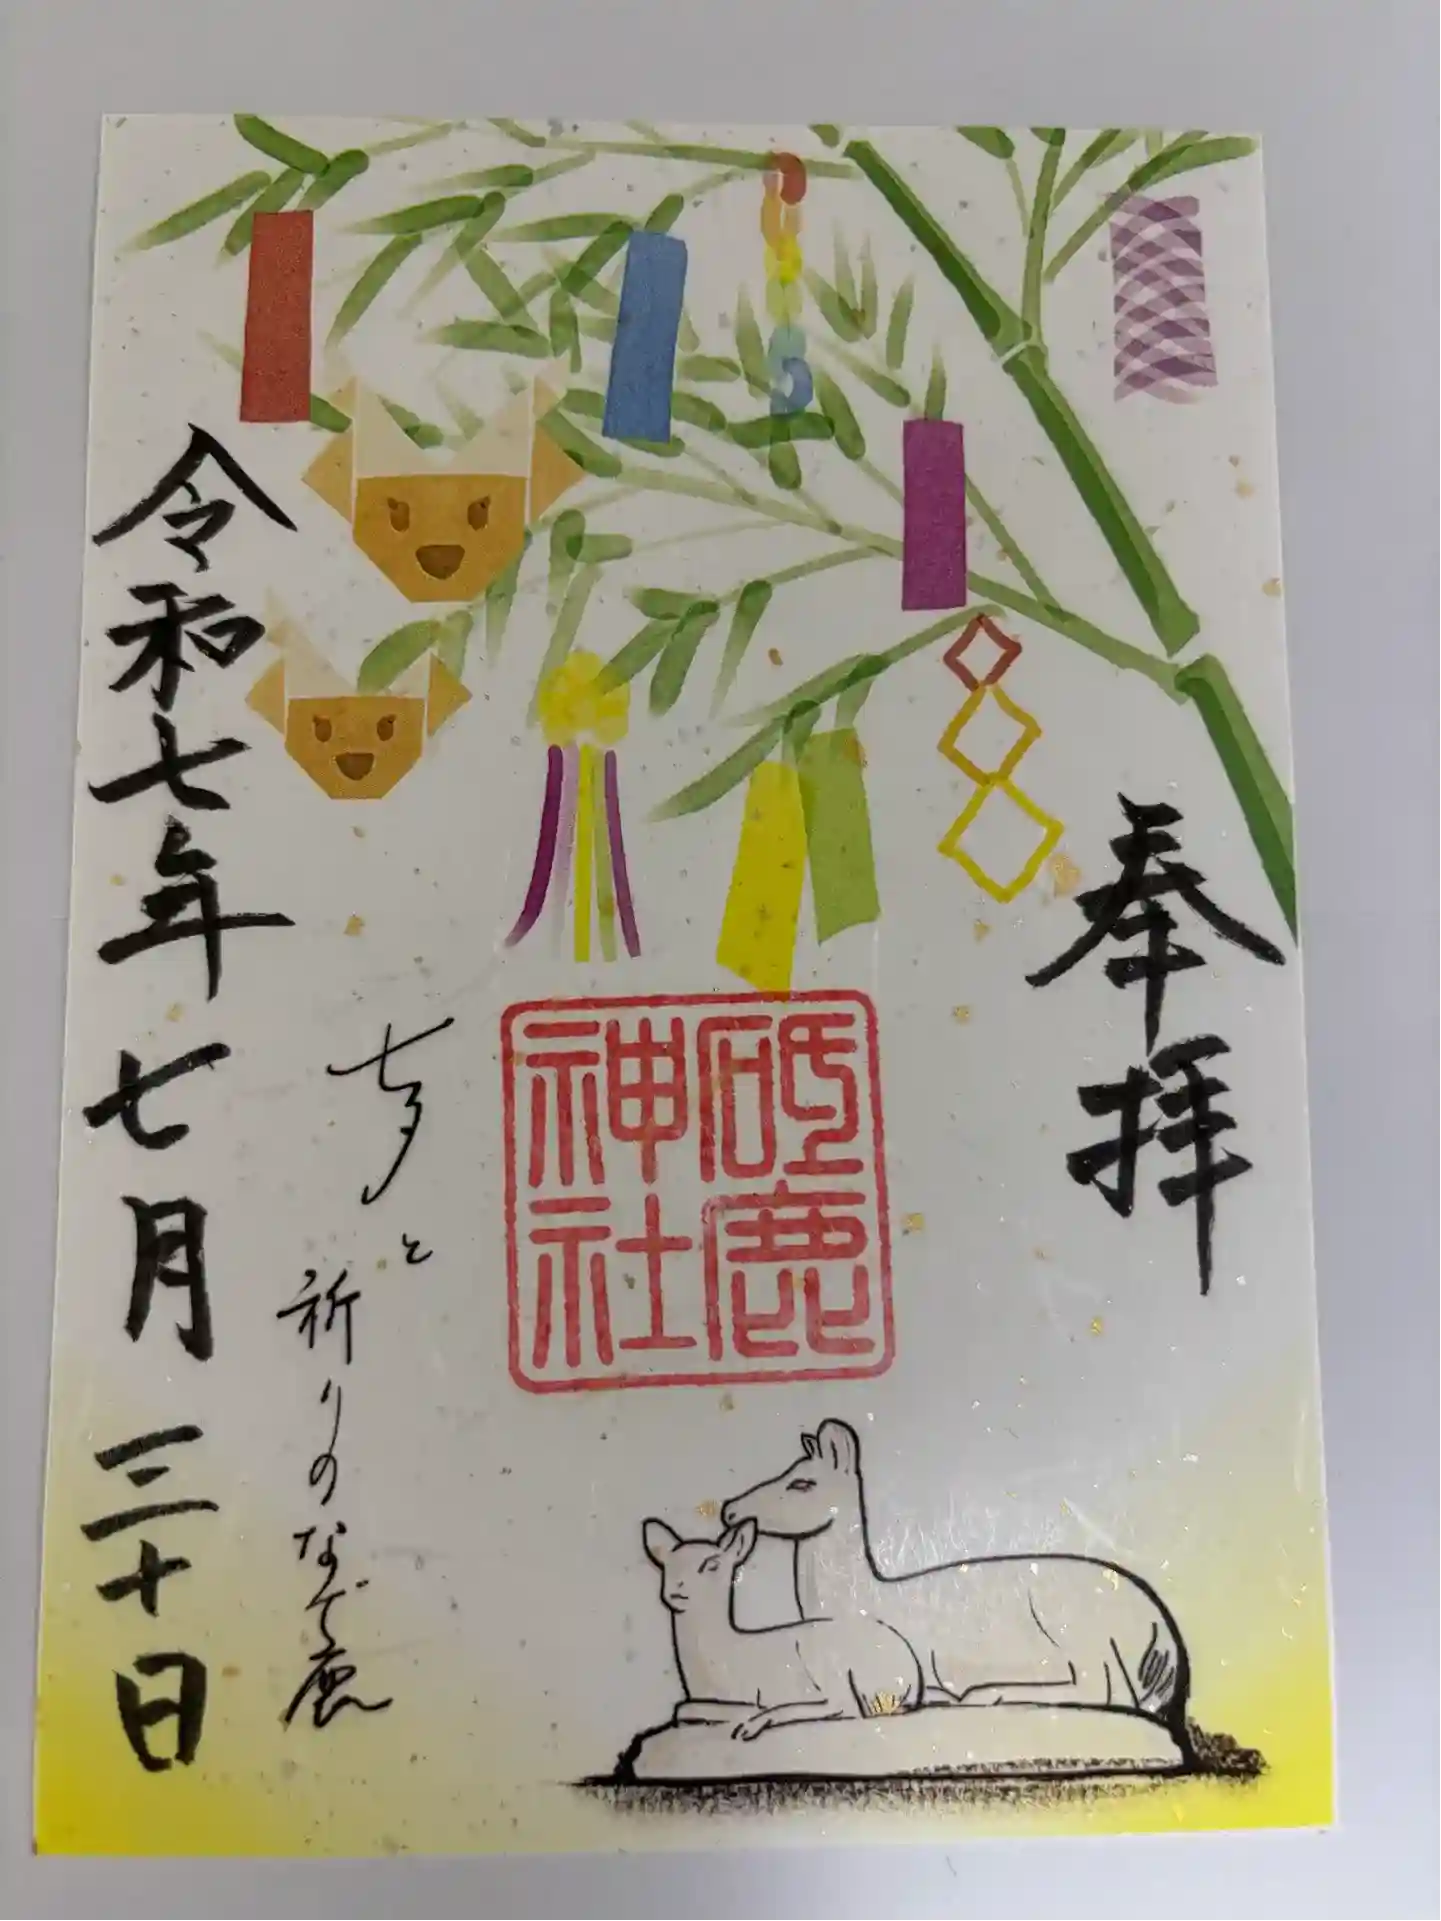 奉拝
砥鹿
神社
七夕と
祈りのなで鹿
令和七年七月三十日